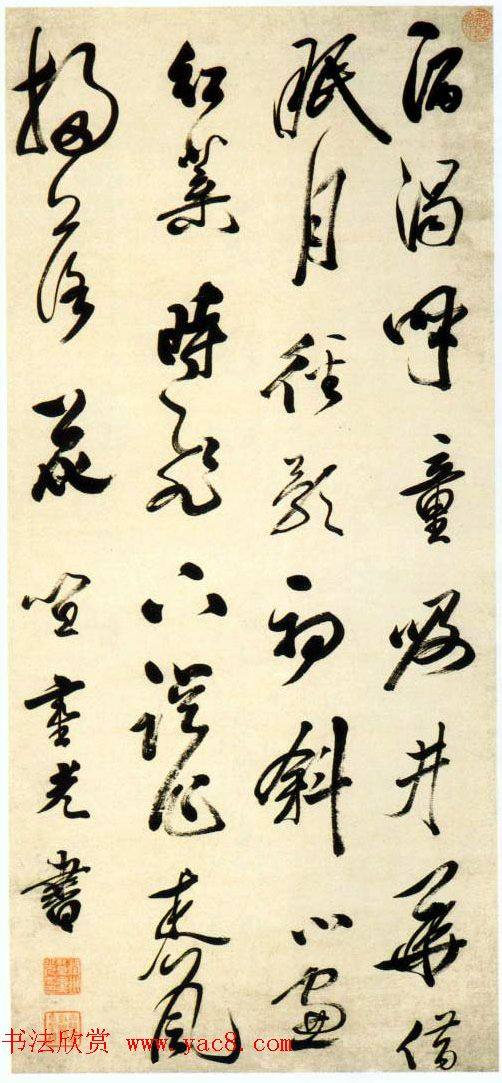 酒渴呼童吸井華借
眠月徑影初斜小窗
紅葉時飛下誤作春風
掃落花 笪重光書
书法欣赏 www.yac8.com